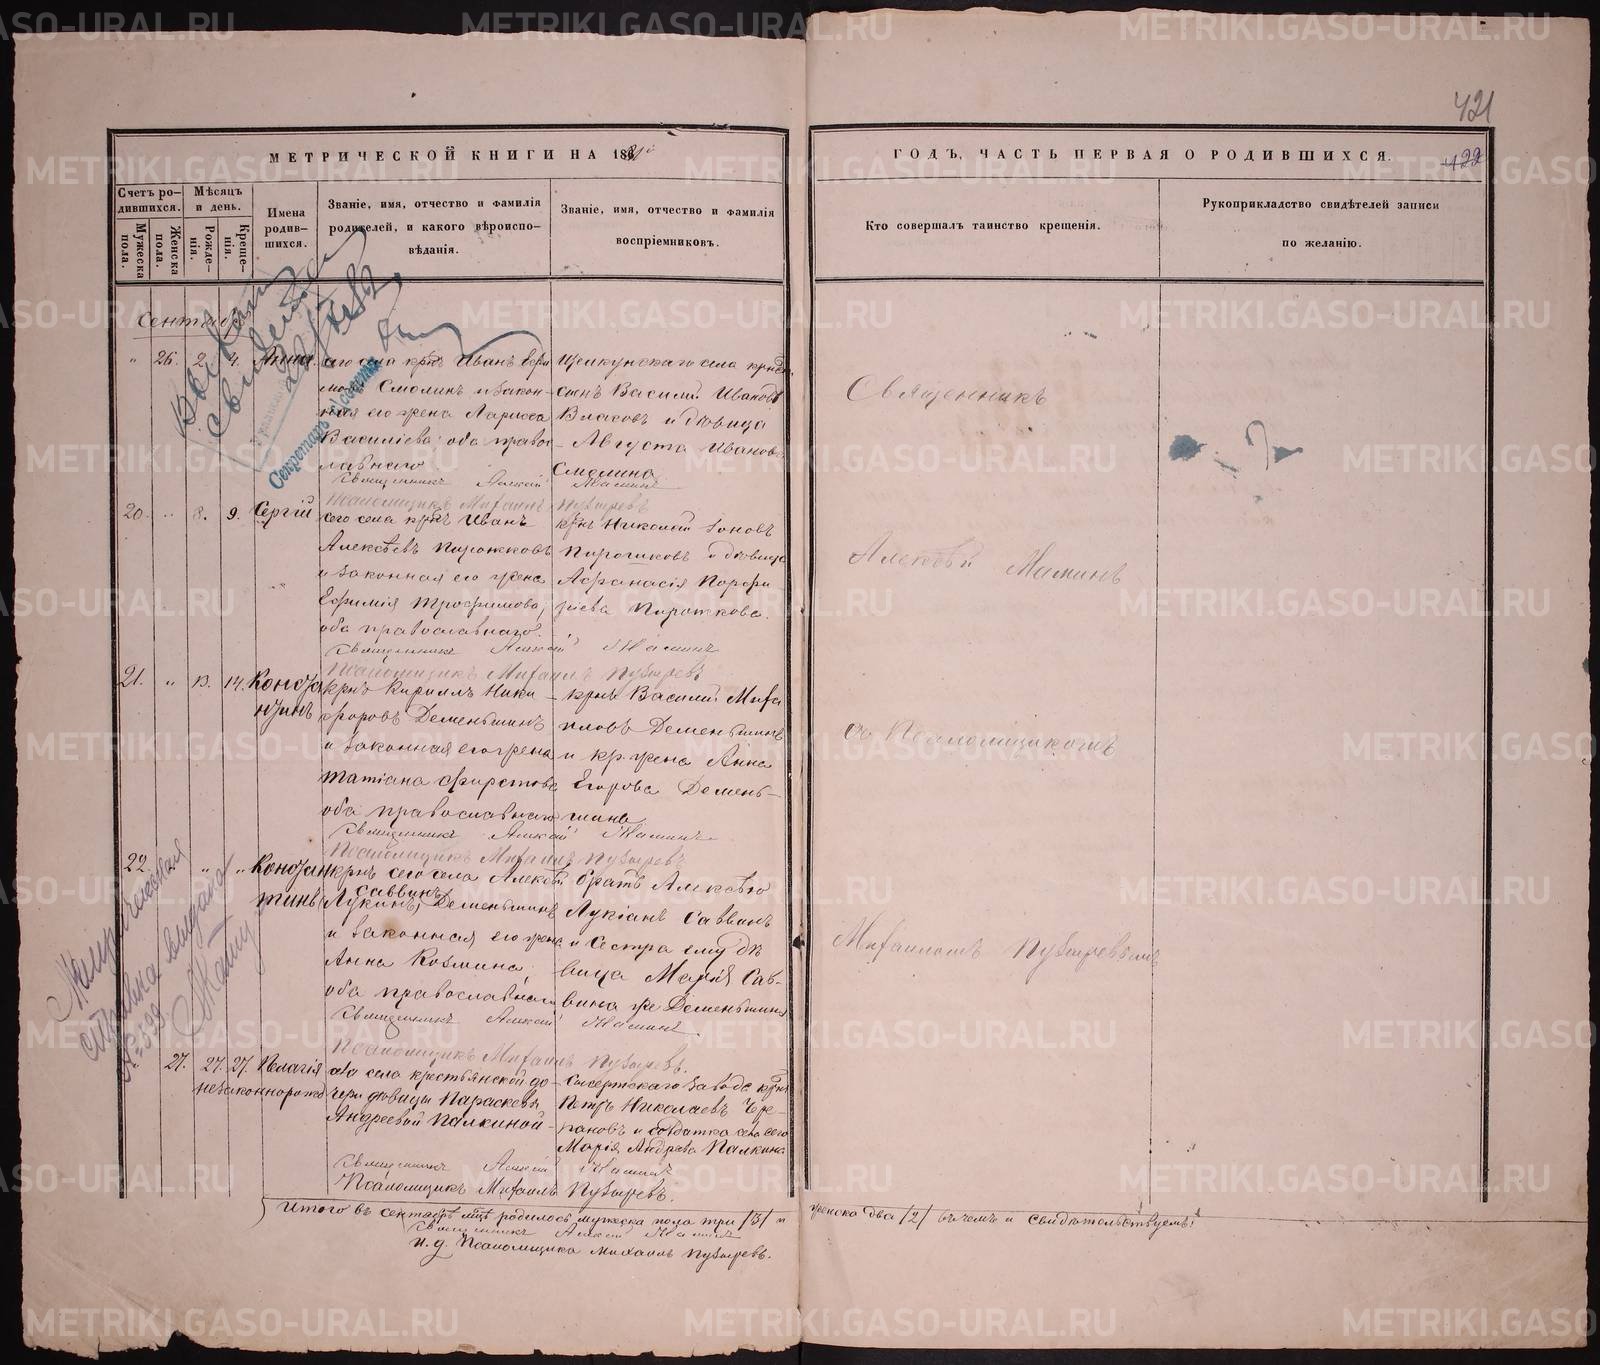 421
422
МЕТРИЧЕСКОЙ КНИГИ НА 18
ГОДЪ, ЧАСТЬ ПЕРВАЯ О РОДИВШИХСЯ.
Счетъ родившихся.
Мужеска пола.
Женска пола.
Мѣсяцъ и день.
Рожденія.
Крещенія.
Имена родившихся.
Званіе, имя, отчество и фамилія
родителей, и какого вѣроиспо-
вѣданія.
Званіе, имя, отчество и фамилія
воспріемниковъ.
Кто совершалъ таинство крещенія.
Рукоприкладство свидѣтелей записи
по желанію.
Сентябрь
" 26. 2. 4. Анна
сего села крнъ Иванъ
Смолинъ и закон-
ная его жена Лариса
Василіева оба правос-
лавнаго
Щелкунскаго села
сынъ Василій Ивановъ
Власовъ и дѣвица
Августа Иванова
Смолина
Священникъ Алексѣй Маминъ
Псаломщикъ Михаилъ Пузыревъ
20. " 8. 9. Сергій
сего села крнъ Иванъ
Алексѣевъ Пирожковъ
и законная его жена
Ефимія Трофимова,
оба православнаго.
крнъ Николай Зоновъ
Пирожковъ и дѣвица
Афанасія Порфи
ріева Пирожкова.
Священникъ Алексѣй Маминъ
Псаломщикъ Михаилъ Пузыревъ
21. " 13. 14. Конста
нтинъ
крнъ Кириллъ Ники-
форовъ Деменьшинъ
и законная его жена
Татіана
оба православнаго
крнъ Василій Миха
иловъ Деменьшинъ
и кр. жена Анна
Егорова Демень-
шина
Священникъ Алексѣй Маминъ
Псаломщикъ Михаилъ Пузыревъ
22. " " Констан
тинъ
крнъ сего села Алексѣй
Саввинъ
Лукинъ Деменьшинъ
и законная его жена
Анна Козмина,
оба православнаго
братъ Алексѣю
Лукіанъ Саввинъ
и сестра ему дѣ
вица Марія Сав-
вина же Деменьшина
Священникъ Алексѣй Маминъ
Псаломщикъ Михаилъ Пузыревъ.
27. 27. 27. Пелагія
незаконнорожд
села крестьянской до-
чери дѣвицы Параскевы
Андреевой Палкиной
Сысертскаго завода крнъ
Петръ Николаевъ Чере-
пановъ и солдатка села сего
Марія Андреева Палкина
Священникъ Алексѣй Маминъ
Псаломщикъ Михаилъ Пузыревъ.
Итого въ сентябрѣ мцѣ родилось мужеска пола три /3/ и
женска два /2/ въ чемъ и свидѣтельствуемъ:
Священникъ Алексѣй Маминъ
и. д. Псаломщика Михаилъ Пузыревъ.
Священникъ
Алексѣй Маминъ
съ Псаломщикомъ
Михаиломъ Пузыревымъ
Секретарь с/совета
Метрическая
справка выдана
№ 599
METRIKI.GASO-URAL.RU